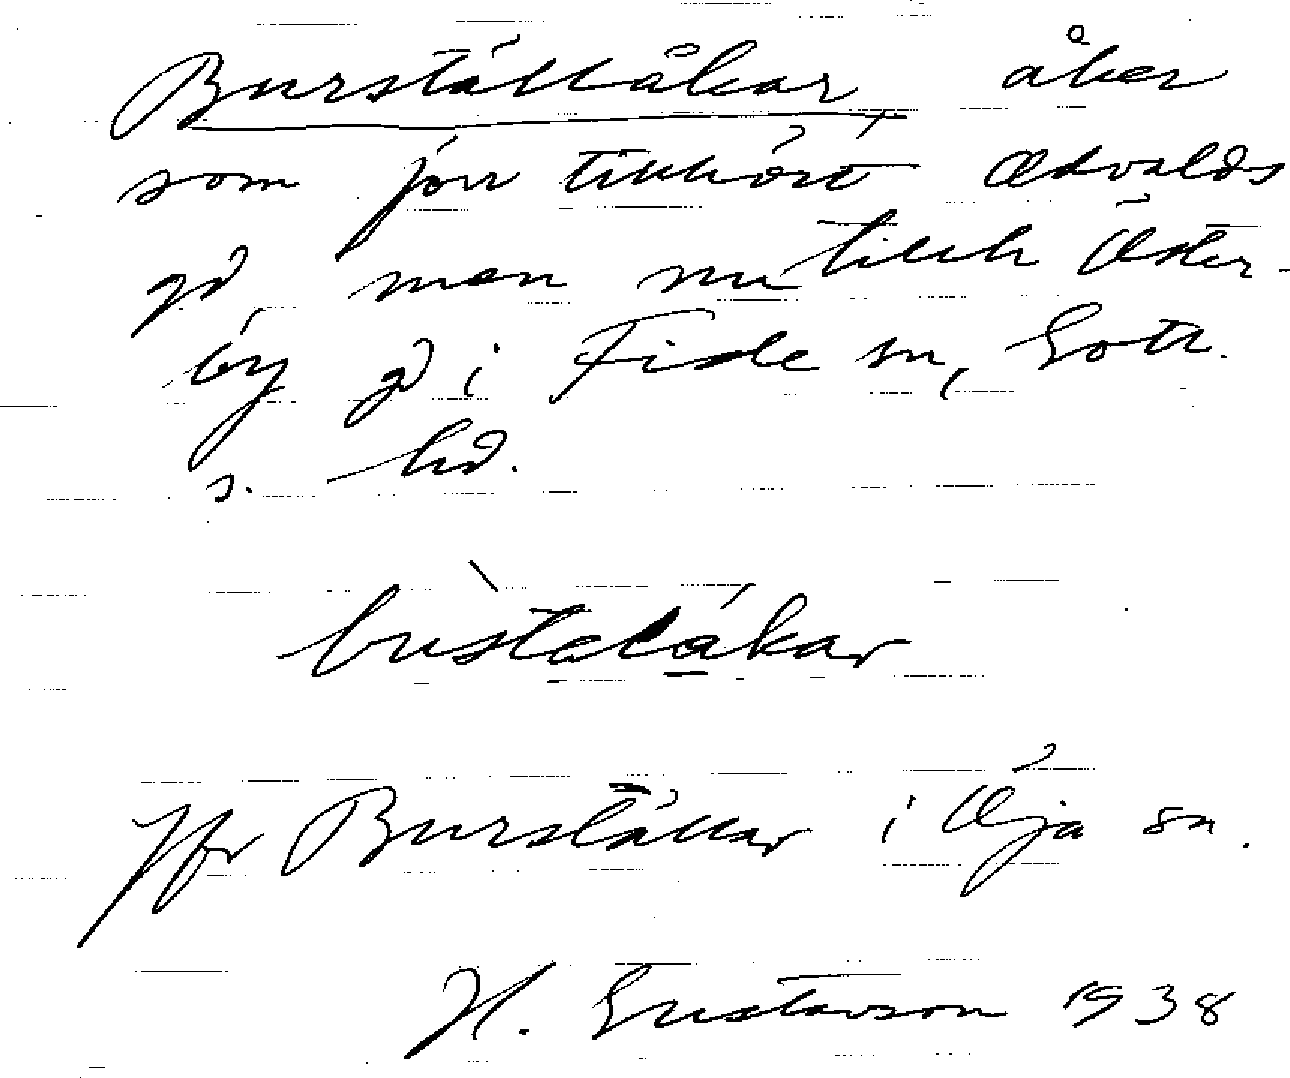 Burställåkar åker
som förr tillhört Ödvalds
gd men nu tillh Öster-
by gd i Fide sn, Gotl.
s. hd.
bustelåkar
Jfr Burställar i Öja sn.
H. Gustavson 1938